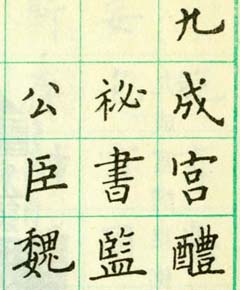 九成宮醴
祕書監
公臣魏